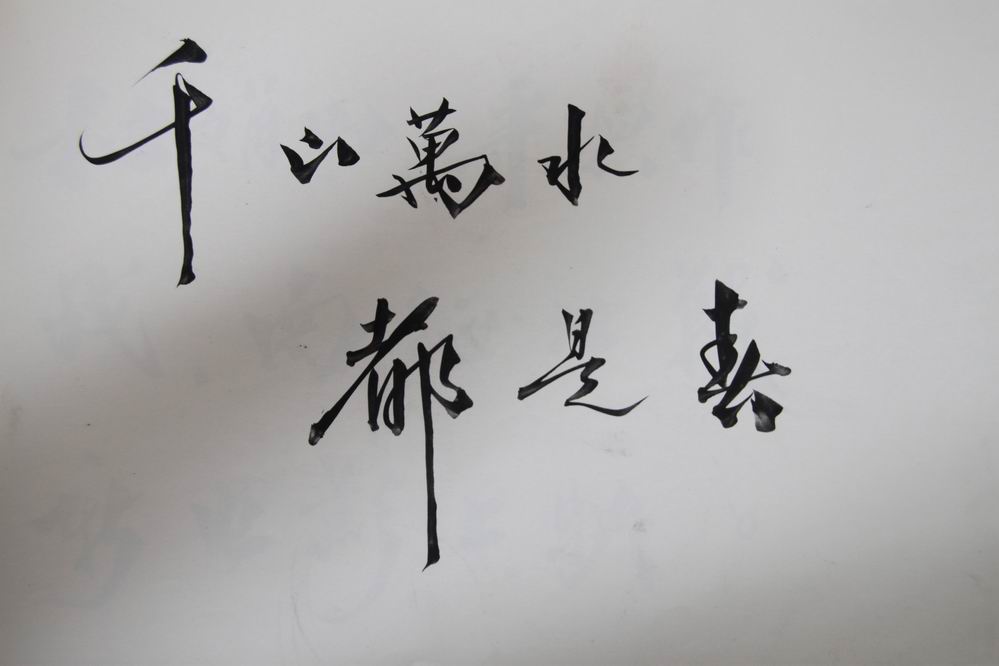 千山萬水
都是春